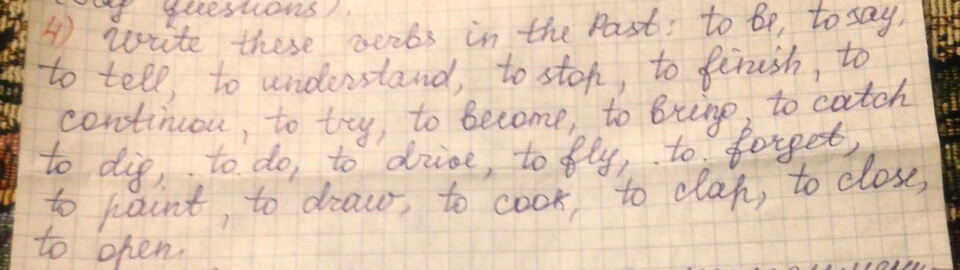 questions).
4) Write these verbs in the Past: to be, to say,
to tell, to understand, to stop, to finish, to
continiou, to try, to become, to bring, to catch
to dig, to do, to drive, to fly, to forget,
to paint, to draw, to cook, to clap, to close,
to open.